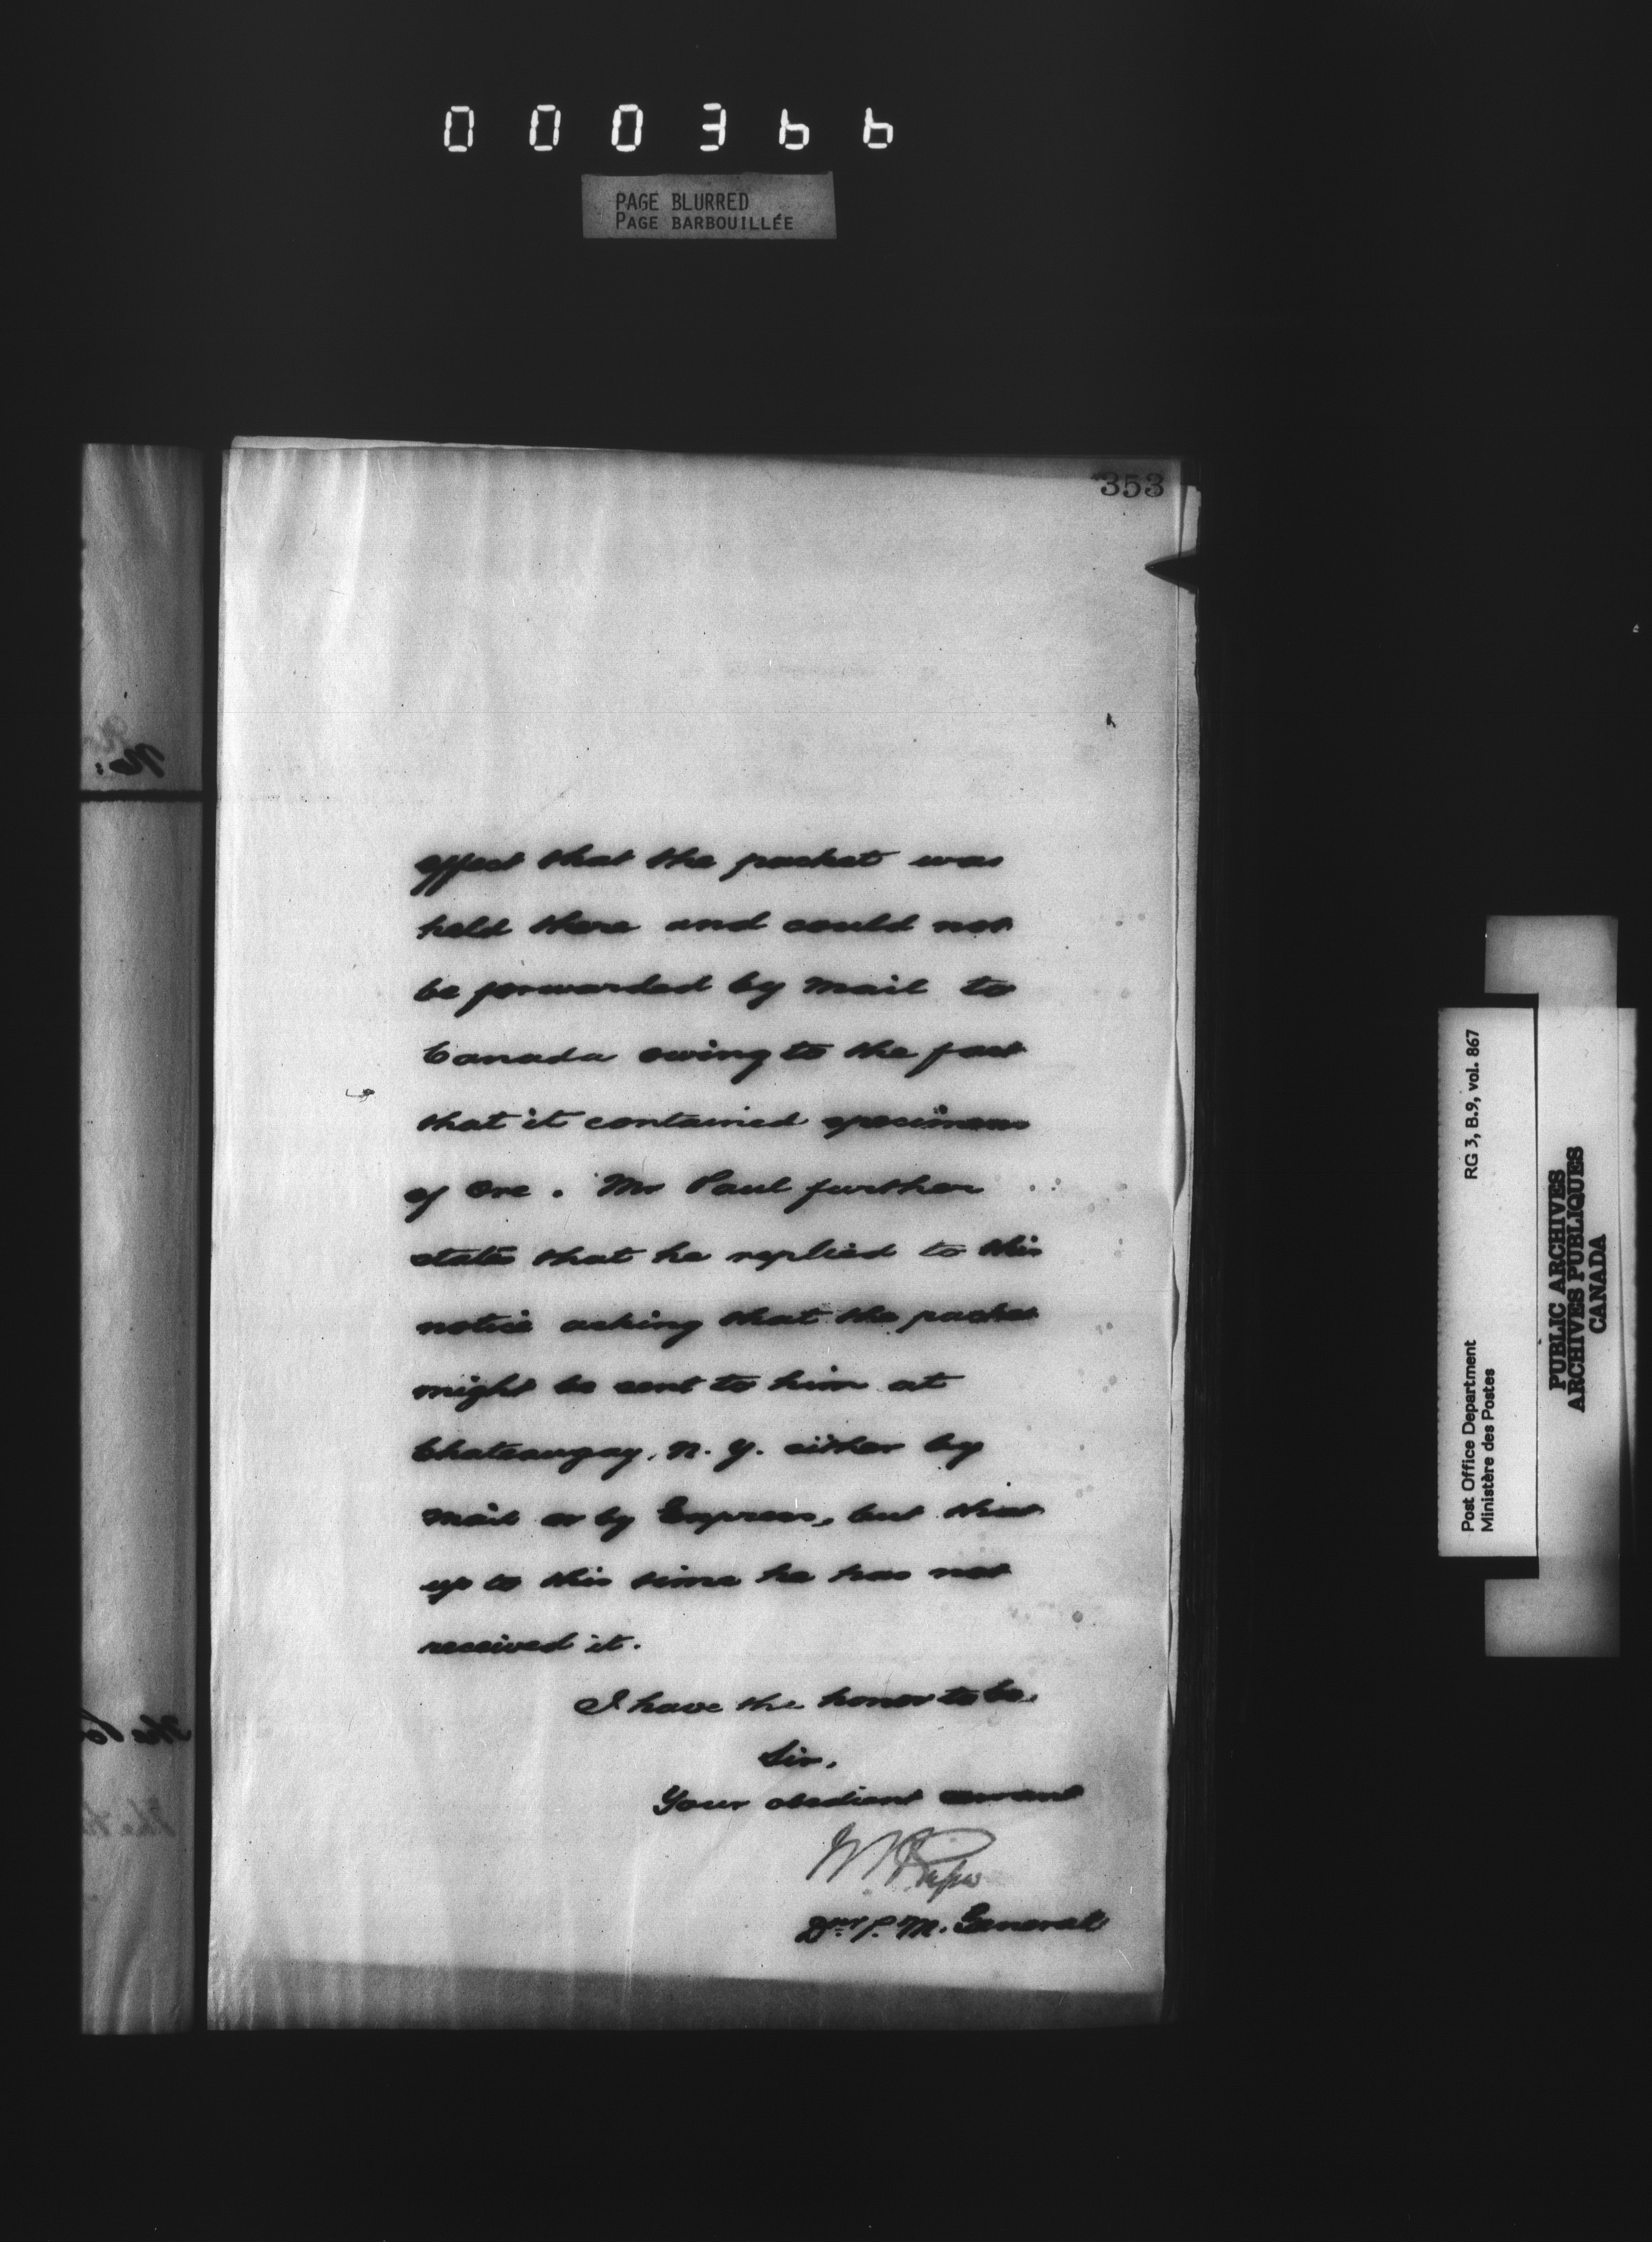 000366
PAGE BLURRED
PAGE BARBOUILLÉE
353
effect that the packet was
held there and could not
be forwarded by mail to
Canada owing to the fact
that it contained specimens
of Ore. Mr Paul further
states that he replied to this
notice asking that the packet
might be sent to him at
Chateaugay, N. Y. either by
mail or by Express, but that
up to this time he has not
received it.
I have the honor to be,
Sir,
Your obedient servant
P. M. General
No:
The
Post Office Department
Ministère des Postes
RG 3, B.9, vol. 867
PUBLIC ARCHIVES
ARCHIVES PUBLIQUES
CANADA